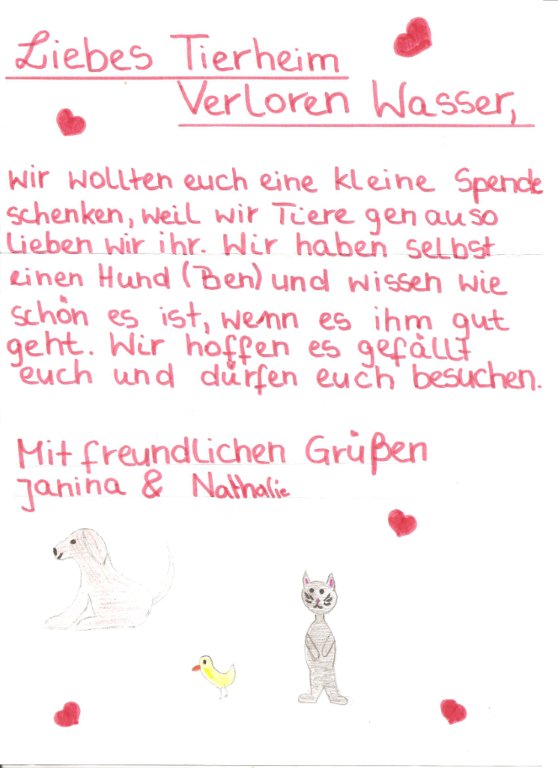 Liebes Tierheim
Verloren Wasser,
wir wollten euch eine kleine Spende
schenken, weil wir Tiere genauso
lieben wir ihr. Wir haben selbst
einen Hund (Ben) und wissen wie
schön es ist, wenn es ihm gut
geht. Wir hoffen es gefällt
euch und dürfen euch besuchen.
Mit freundlichen Grüßen
Janina & Nathalie